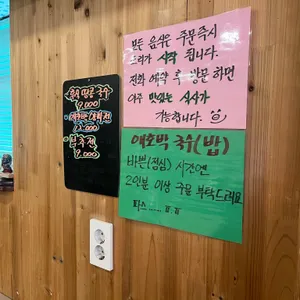 국수
9,000
9,000
모든 음식은 주문즉시
조리가 시작 됩니다.
전화 예약 후 방문 하면
아주 맛있는 식사가
가능합니다.
애호박 국수(밥)
바쁜(점심) 시간엔
2인분 이상 주문 부탁드려요